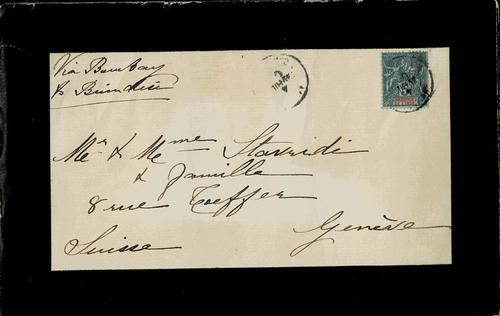 Via Bombay
& Brindisi
Mr & Mme Stavridi
& famille
8 rue Toeffer
Genève
Suisse